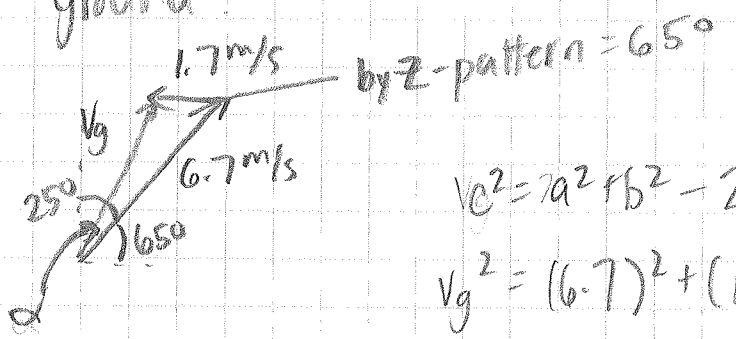 ground
1.7 m/s
by Z-pattern = 65°
Vg
6.7 m/s
25°
65°
α
c² = a² + b² - 2
Vg² = (6.7)² + (1